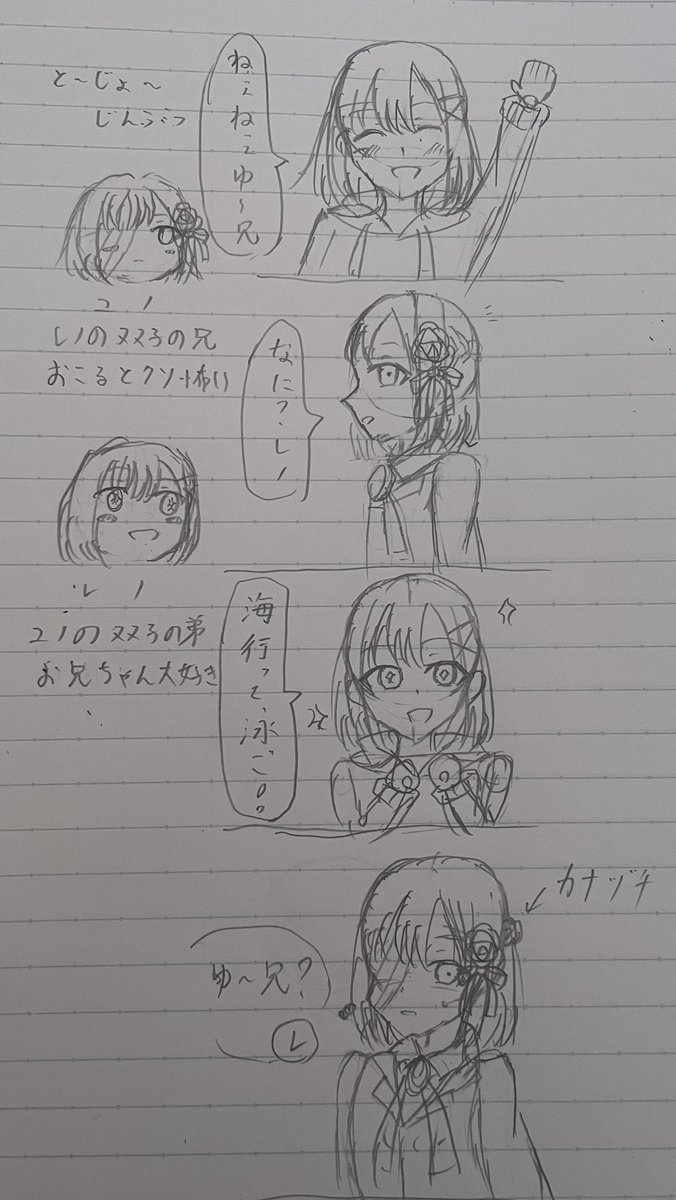 ねぇねぇゆ〜兄
と〜じょ〜
じんぶつ
ユノ
レノの双子の兄
おこるとクソ怖い
なに？レノ
レノ
ユノの双子の弟
お兄ちゃん大好き
海行って、泳ご！！
カナヅチ
ゆ〜兄？
レ